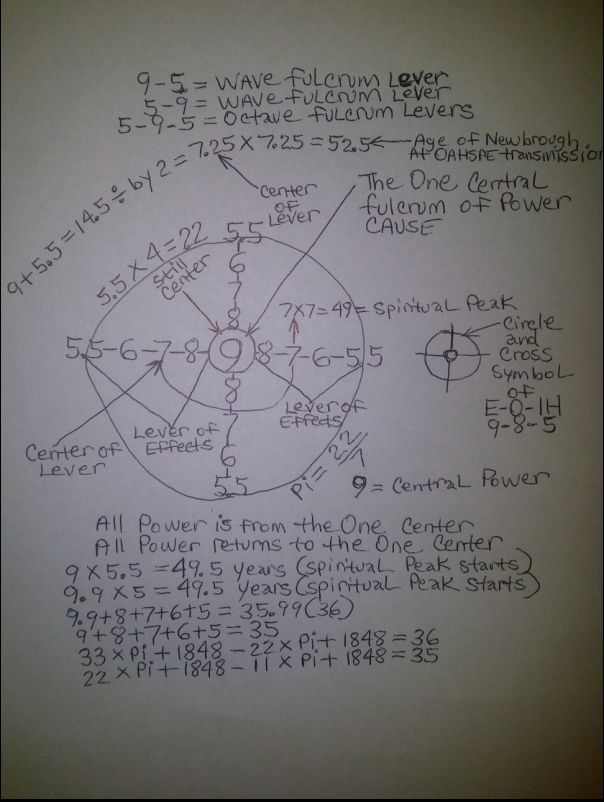 9-5 = WAVE fulcrum Lever
5-9 = WAVE fulcrum Lever
5-9-5 = Octave fulcrum Levers
9+5.5 = 14.5 ÷ by 2 = 7.25 X 7.25 = 52.5
Age of Newbrough
At OAHSPE transmission
Center
of
Lever
The One Central
fulcrum of Power
CAUSE
5.5 X 4 = 22
Still
Center
5.5
6
7
8
7X7=49= Spiritual Peak
5.5-6-7-8-9-8-7-6-5.5
8
7
6
5.5
Lever of
Effects
Lever of
Effects
Center of
Lever
Pi = 22/7
Circle
and
Cross
Symbol
of
E-O-IH
9-8-5
9 = Central Power
All Power is from the One Center
All Power returns to the One Center
9 X 5.5 = 49.5 years (spiritual Peak starts)
9.9 X 5 = 49.5 years (spiritual Peak starts)
9.9+8+7+6+5 = 35.99 (36)
9+8+7+6+5 = 35
33 x Pi + 1848 - 22 x Pi + 1848 = 36
22 x Pi + 1848 - 11 x Pi + 1848 = 35